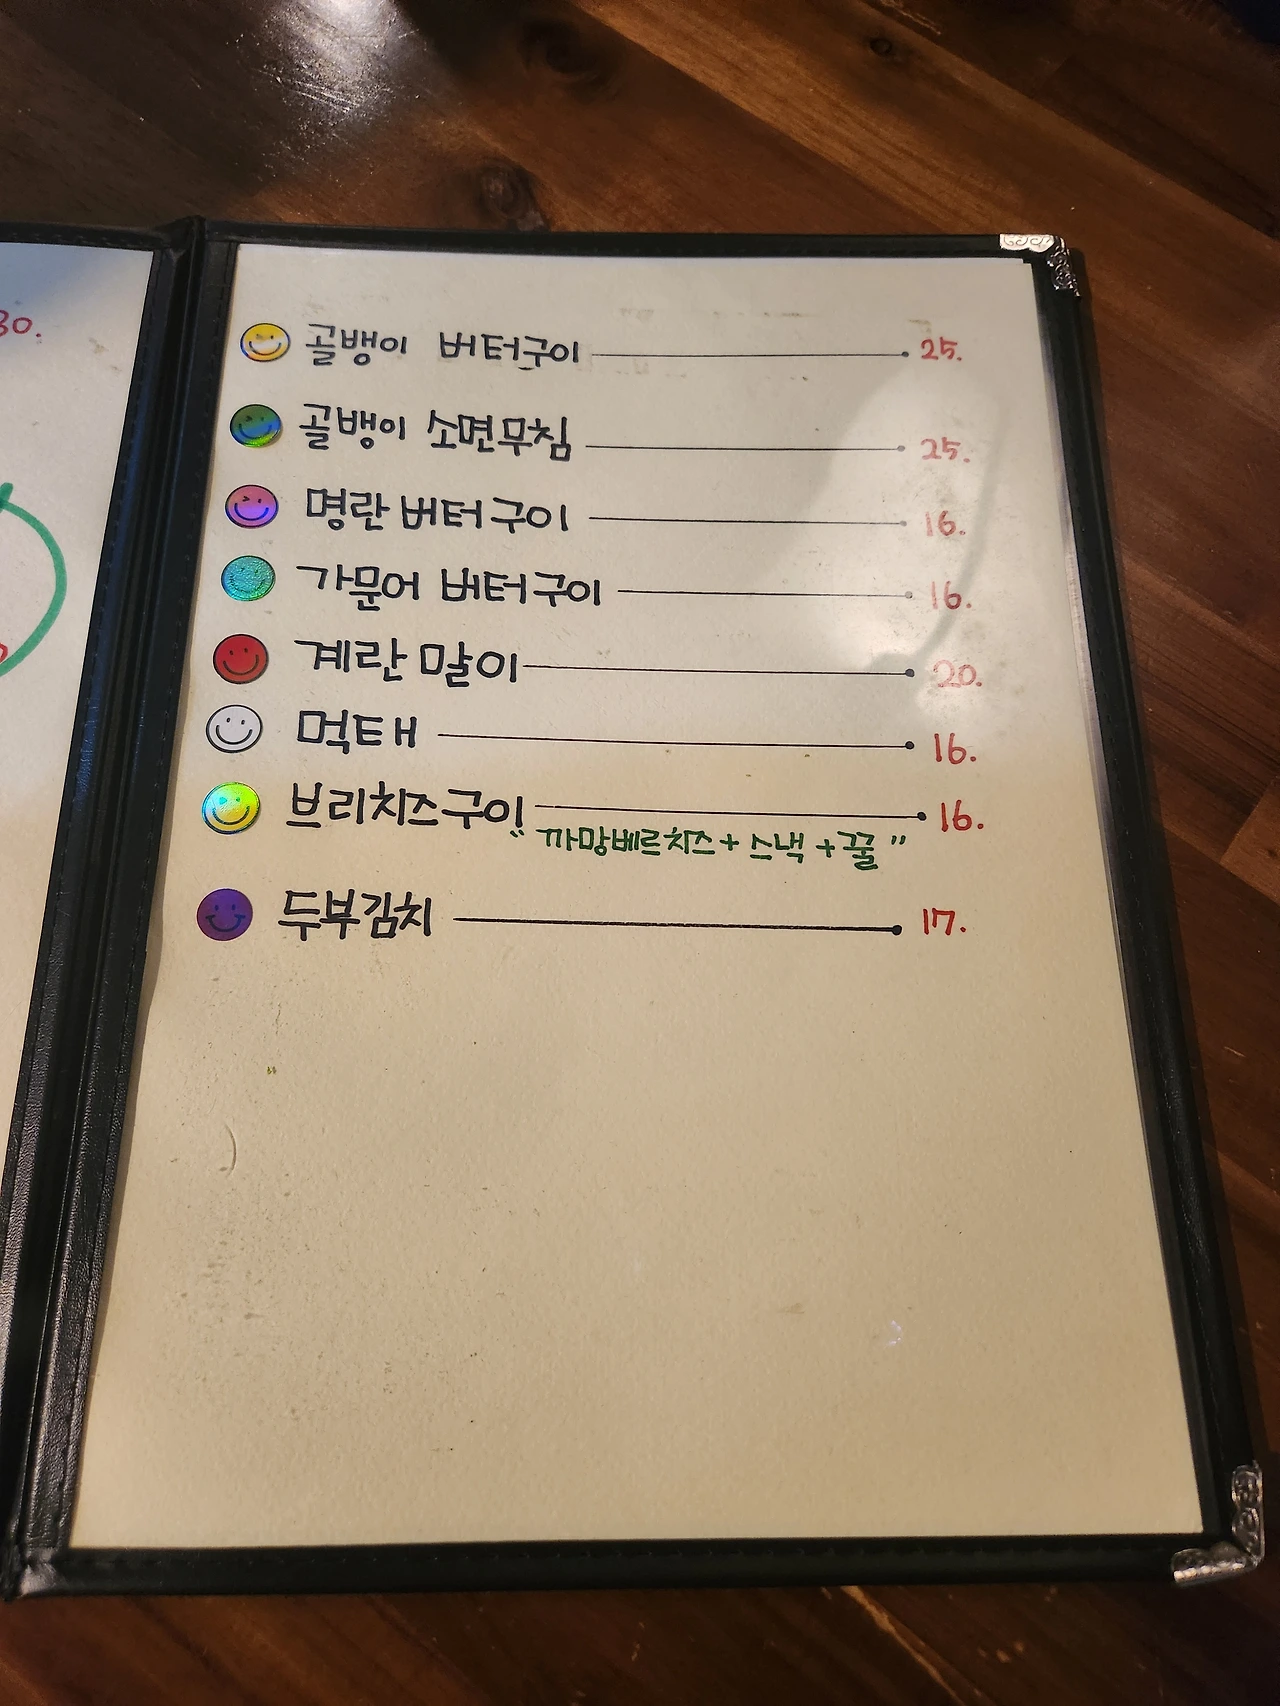 30.
골뱅이 버터구이 25.
골뱅이 소면무침 25.
명란 버터구이 16.
가문어 버터구이 16.
계란말이 20.
먹태 16.
브리치즈구이 16.
"까망베르치즈+스낵+꿀"
두부김치 17.